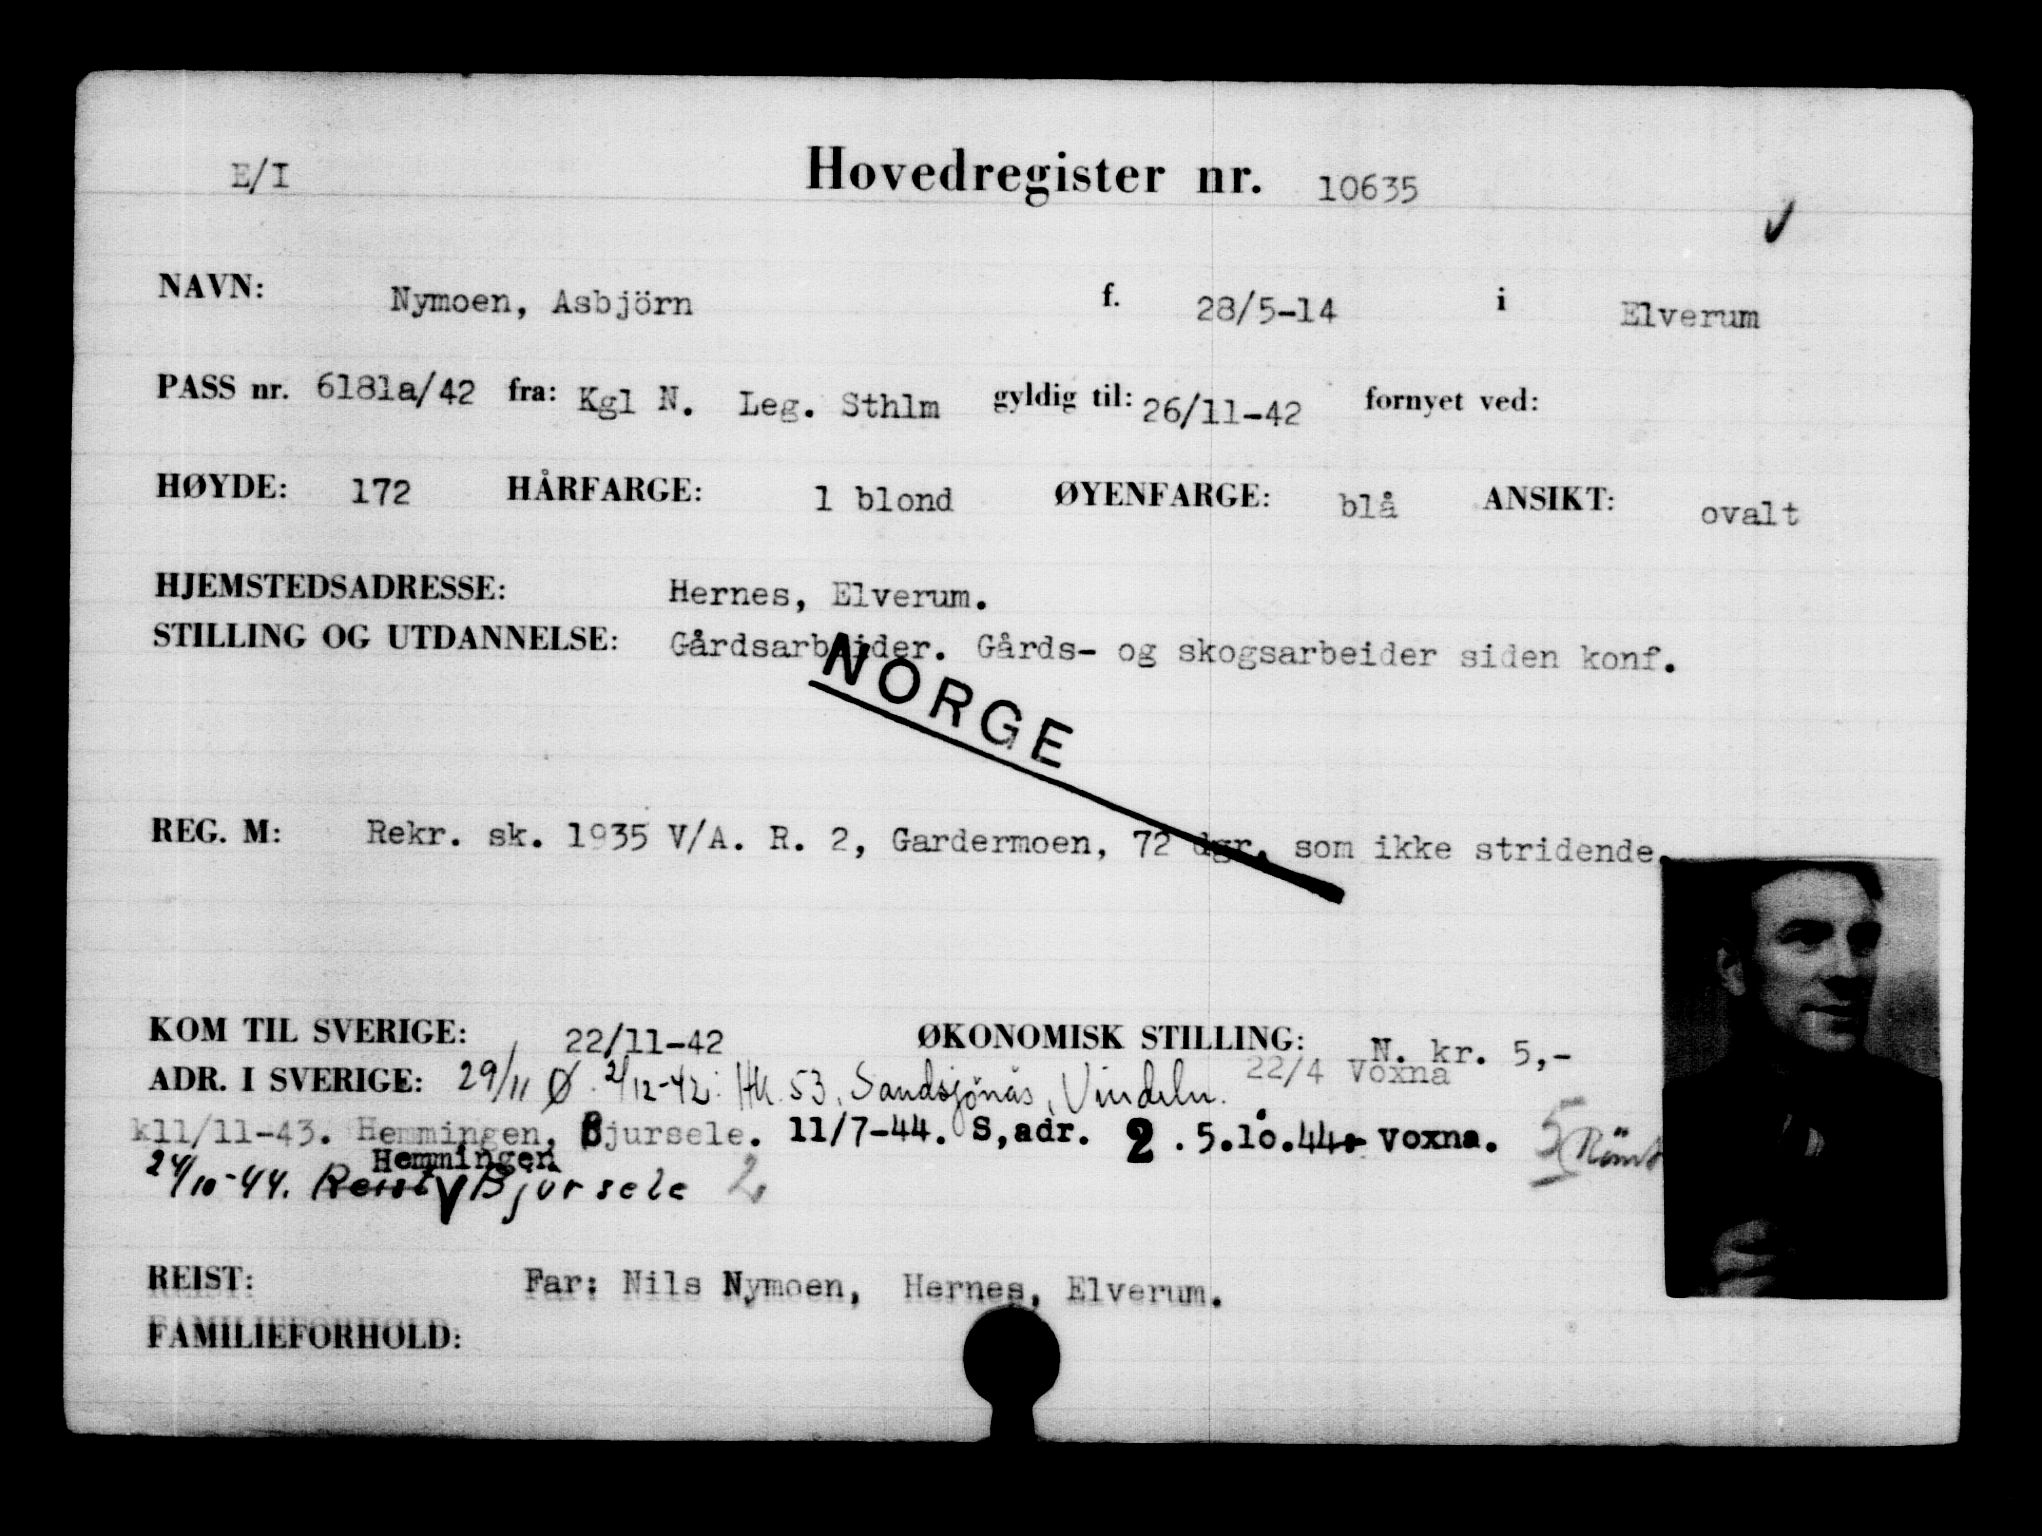 E/I Hovedregister nr. 10635
NAVN: Nymoen, Asbjörn f. 28/5-14 i Elverum
PASS nr. 6181a/42 fra: Kgl N. Leg. Sthlm gyldig til: 26/11-42 fornyet ved:
HØYDE: 172 HÅRFARGE: l blond ØYENFARGE: blå ANSIKT: ovalt
HJEMSTEDSADRESSE: Hernes, Elverum.
STILLING OG UTDANNELSE: Gårdsarbeider. Gårds- og skogsarbeider siden konf.
NORGE
REG. M: Rekr. sk. 1935 V/A. R. 2, Gardermoen, 72 dgr. som ikke stridende.
KOM TIL SVERIGE: 22/11-42 ØKONOMISK STILLING: N. kr. 5,-
ADR. I SVERIGE: 29/11 Ø. 2/12-42: Hk. 53, Sandsjönäs, Vindeln. 22/4 Voxna
k11/11-43. Hemmingen, Bjursele. 11/7-44. S,adr. 2 . 5.10.44. Voxna. 5
Hemmingen
24/10-44. Bjursele 2
REIST: Far: Nils Nymoen, Hernes, Elverum.
FAMILIEFORHOLD: